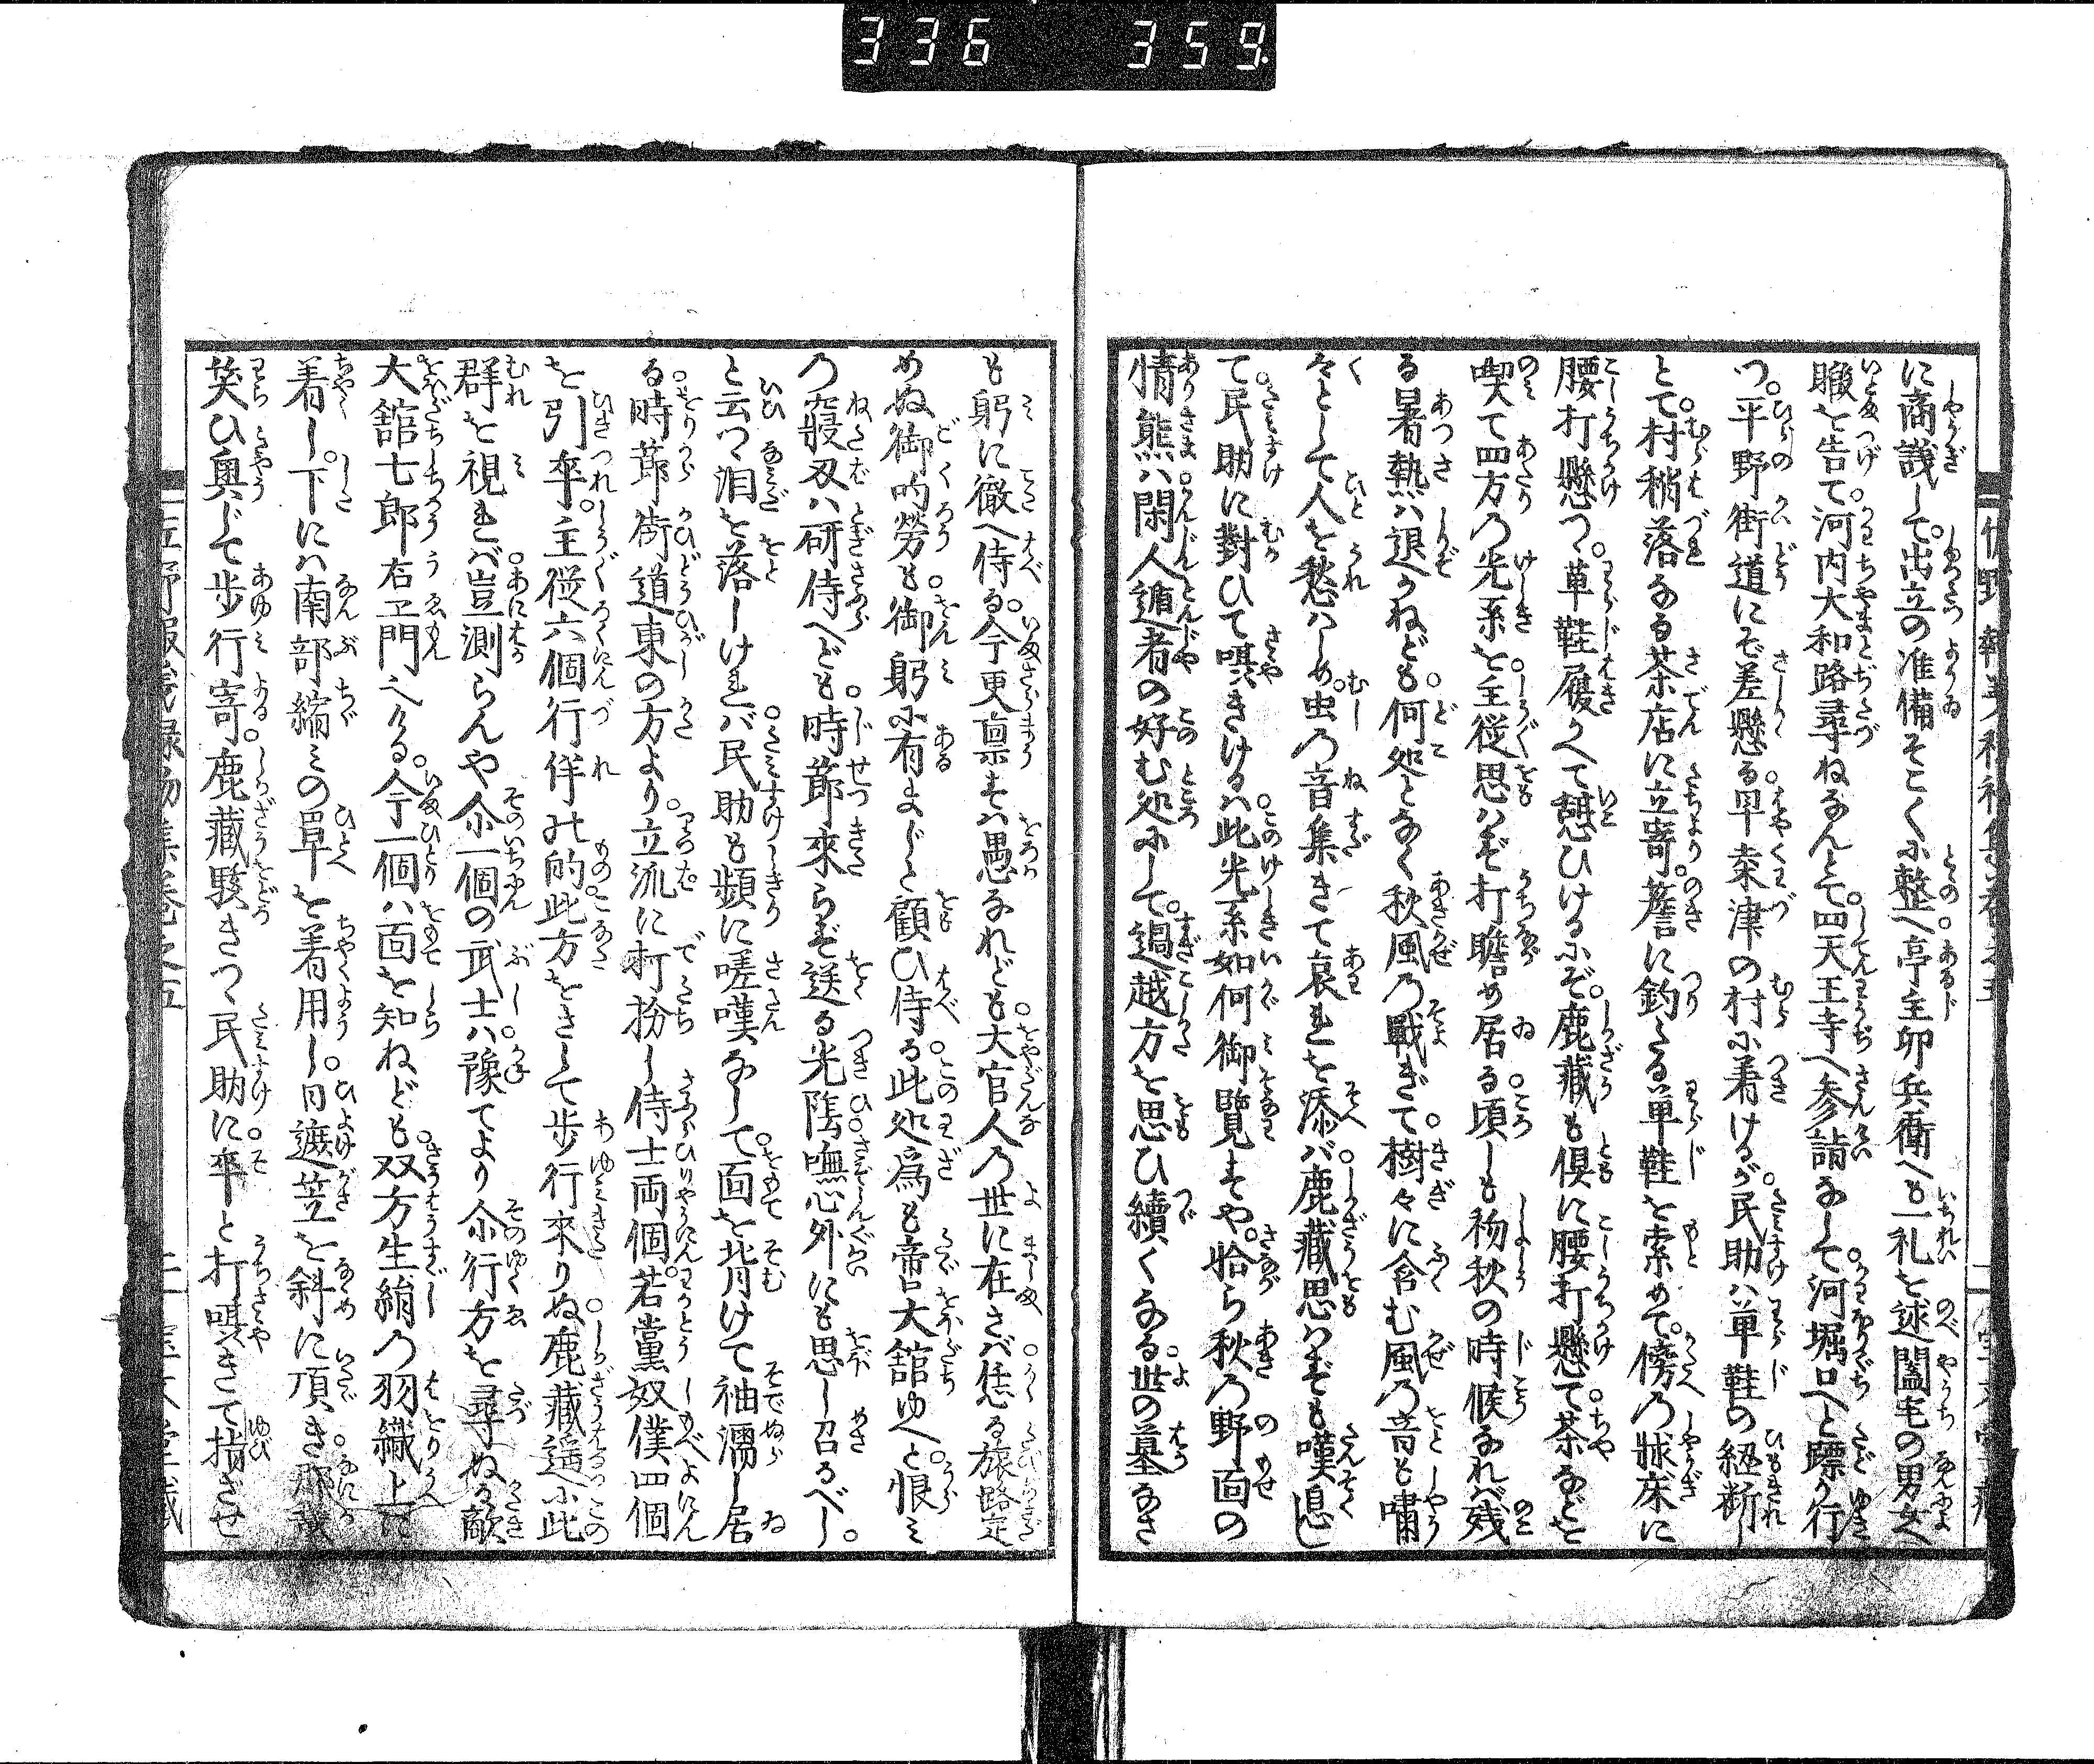 336 359
に商議して。出立の准備そこ〱に整へ亭主卯兵衛へも一礼を述闔宅の男女へ
暇を告て河内大和路尋ねなんとて。四天王寺へ参詣なして河堀口へと蹽り行
つ。平野街道にぞ差懸る。早桒津の村に着けるが。民助ハ草鞋の紐断し
とて。村稍落なる茶店に立寄。簷に釣たる草鞋を索めて。傍の牀床に
腰打懸つゝ。草鞋履かへて憩ひけるにぞ。鹿藏も倶に腰打懸て。茶などを
喫て四方の光系を。主從思はず打瞻め居る。頃しも初秋の時候なれバ残
る暑熱ハ退かねども。何処となく秋風の戦ぎて。樹々に含む風の音も嘯
々として人を愁ハしめ。虫の音集きて哀れを添バ。鹿藏思はずも嘆息し
て。民助に對ひて咡きけるハ。此光系如何御覽ずや。恰ら秋の野面の
情熊ハ。閑人遁者の好む処にして。過越方を思ひ續くなる。世の墓なさ
も躬に徹へ侍る。今更稟すハ愚なれども。大官人の世に在さバ。恁る旅路定
めぬ御的勞も。御躬に有よじと顧ひ侍る。此処爲も帝大舘ゆへと。恨ミ
の寢刄ハ研侍へども。時莭來らず送る光陰。嘸心外にも思し召るべし。
と云つゝ泪を落しけれバ。民助も頻に嗟嘆なして。面を背けて袖濡し居
る。時莭街道東の方より。立派に打扮し侍士両個。若黨奴僕四個
を引卒。主從六個行伴の的。此方をさして歩行來りぬ。鹿藏遥に此
群を視れバ。豈測らんや尒一個の武士ハ。豫てより尒行方を尋ぬる敵
大舘七郎右エ門へる。今一個ハ面を知ねども。双方生絹の羽織上に
着し。下にハ南部縮ミの單を着用し。日遮笠を斜に頂き。那
笑ひ興じて歩行寄。鹿藏駭きつゝ民助に。卒と打咡きて指させ